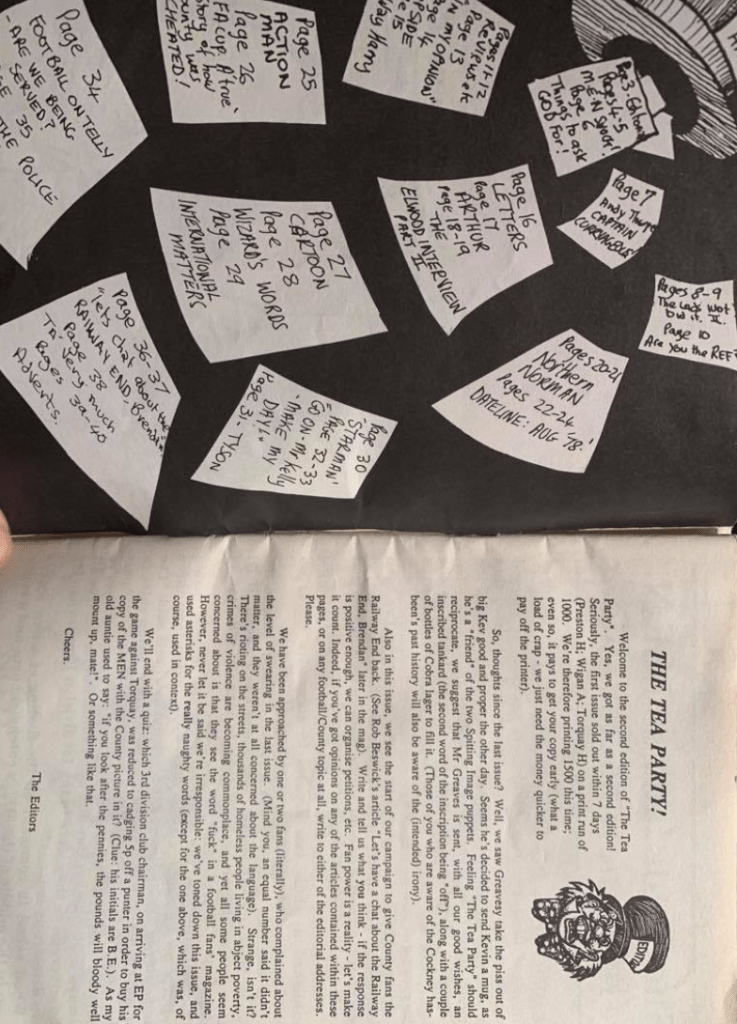 Page 3. Editorial
Pages 4-5
M.E.N SHOCK!
Page 6
Things to ask
GOD FOR!
Page 7
Andy Thorpe
CAPTAIN
COURAGEOUS
Pages 8-9
The Lads wot
Did it. II
Page 10
Are you the REF?
Pages 11-12
Reviews etc
Page 13
IN MY OPINION"
Page 14
Page 15
Way Harry
Page 16
LETTERS
Page 17
ARTHUR
Page 18-19
-THE
ELWOOD INTERVIEW
PART II
Pages 20-21
Northern
NORMAN
Pages 22-24
DATELINE: AUG '98'
Page 25
ACTION
MAN
Page 26
FA cup. A 'true'
story of how
County was
CHEATED!
Page 27
CARTOON
Page 28
WIZARD'S WORDS
Page 29
INTERNATIONAL
MATTERS
Page 30
'STARMAN'
PAGE 32-33
GO ON. Mr Kelly
'MAKE MY
DAY!'
Page 31. TYSON
Page 34
FOOTBALL ON TELLY
- ARE WE BEING
SERVED?
35
THE POLICE
Page 36-37
"Lets chat about the
RAILWAY END, Brendan
Page 38
TA' very much
Pages 39-40
Adverts.
THE TEA PARTY!
EDITOR
Welcome to the second edition of "The Tea
Party". Yes, we got as far as a second edition!
Seriously, the first issue sold out within 7 days
(Preston H; Wigan A; Torquay H) on a print run of
1000. We're therefore printing 1500 this time;
even so, it pays to get your copy early (what a
load of crap - we just need the money quicker to
pay off the printer).
So, thoughts since the last issue? Well, we saw Greavesy take the piss out of
big Kev good and proper the other day. Seems he's decided to send Kevin a mug, as
he's a "friend" of the two Spitting Image puppets. Feeling "The Tea Party" should
reciprocate, we suggest that Mr Greaves is sent, with all our good wishes, an
inscribed tankard (the second word of the inscription being "off"), along with a couple
of bottles of Cobra lager to fill it. (Those of you who are aware of the Cockney has-
been's past history will also be aware of the (intended) irony).
Also in this issue, we see the start of our campaign to give County fans the
Railway End back. (See Rob Beswick's article "Let's have a chat about the Railway
End, Brendan" later in the mag). Write and tell us what you think - if the response
is positive enough, we can organise petitions, etc. Fan power is a reality - let's make
it count. Indeed, if you've got opinions on any of the articles contained within these
pages, or on any football/County topic at all, write to either of the editorial addresses.
Please.
We have been approached by one or two fans (literally), who complained about
the level of swearing in the last issue. (Mind you, an equal number said it didn't
matter, and they weren't at all concerned about the language). Strange, isn't it?
There's rioting on the streets, thousands of homeless people living in abject poverty,
crimes of violence are becoming commonplace, and yet all some people seem
concerned about is that they see the word "fuck" in a football fans' magazine.
However, never let it be said we're irresponsible; we've toned down this issue, and
used asterisks for the really naughty words (except for the one above, which was, of
course, used in context).
We'll end with a quiz: which 3rd division club chairman, on arriving at EP for
the game against Torquay, was reduced to cadging 5p off a punter in order to buy his
copy of the MEN with the County picture in it? (Clue: his initials are B.E.). As my
old auntie used to say: "if you look after the pennies, the pounds will bloody well
mount up, mate!". Or something like that.
Cheers.
The Editors